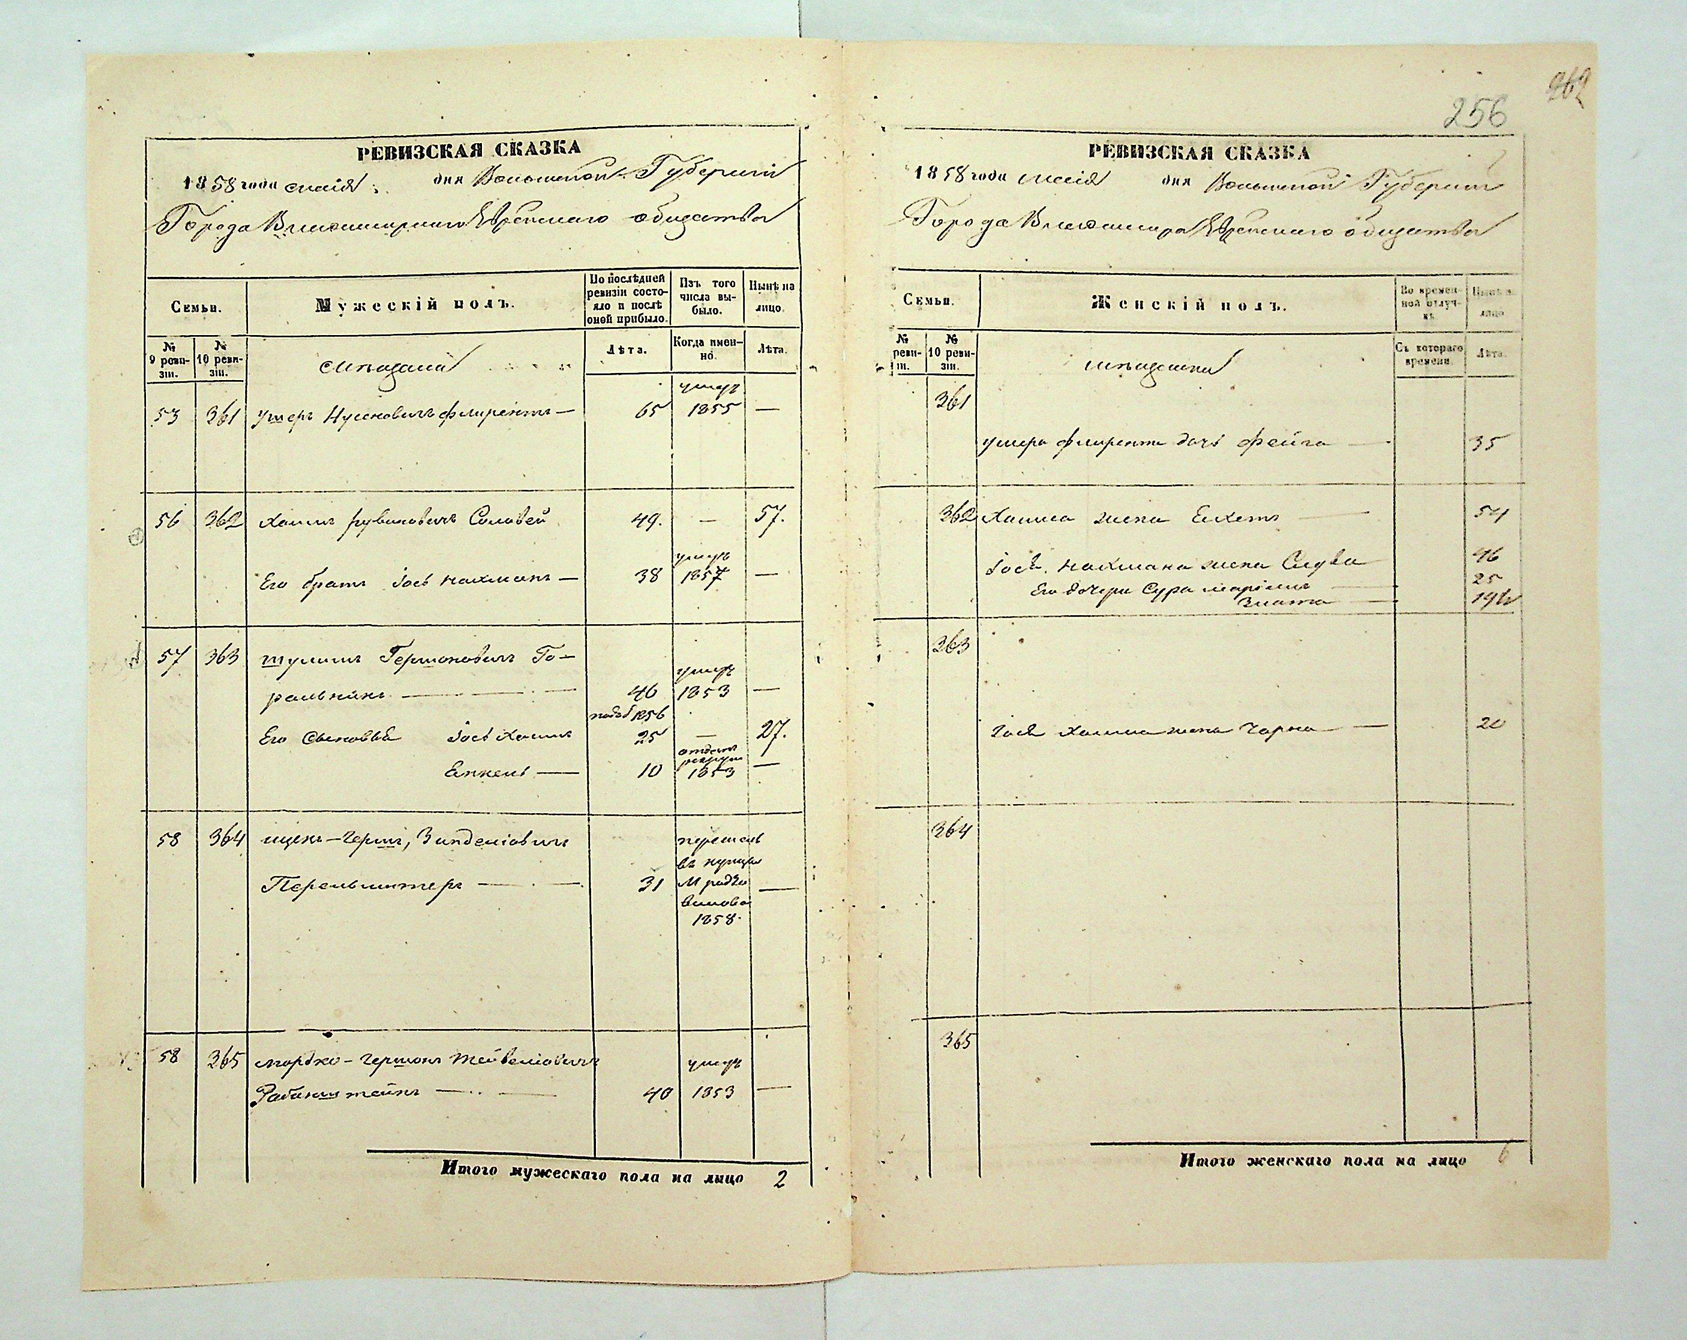 262
256
РЕВИЗСКАЯ СКАЗКА
1858 года мая дня Волынской Губерніи
Города Владимира Еврейскаго общества
Семьи.
Мужескій полъ.
По послѣдней ревизіи состояло и послѣ оной прибыло.
Изъ того числа выбыло.
Нынѣ на лицо.
№ 9 ревизіи.
№ 10 ревизіи.
мѣщане
Лѣта.
Когда именно.
Лѣта.
умеръ
53 361 Ушеръ Нусеновичъ 65 1855 —
56 362 Хаимъ Рувиновичъ Соловей 49. — 57.
умеръ
Его братъ Іось Нахманъ — 38 1857 —
57 363 Шулимъ Гершоновичъ Го-
умеръ
ральникъ — 46 1853 —
1856
Его сыновья Іось Хаимъ 25 — 27.
отданъ
рекруты
10 1853 —
58 364 Ицекъ-Гершъ,
перешелъ
въ купцы
31 —
1858.
58 365 Мордко-Гершонъ умеръ
40 1853 —
Итого мужескаго пола на лицо 2
РЕВИЗСКАЯ СКАЗКА
1858 года мая дня Волынской Губерніи
Города Владимира Еврейскаго общества
Семьи.
Женскій полъ.
Во временной отлучкѣ.
Нынѣ на лицо
№ реви-
іи.
№ 10 ревизіи.
мѣщанки
Съ котораго времени.
Лѣта.
361
Ушера дочь Фейга — 35
362 Хаима жена — 54
Іося Нахмана жена Слува 46
Его дочери Сура Маріемъ — 25
Злата —
363
Іося Хаима жена Чарна — 20
364
365
Итого женскаго пола на лицо 6